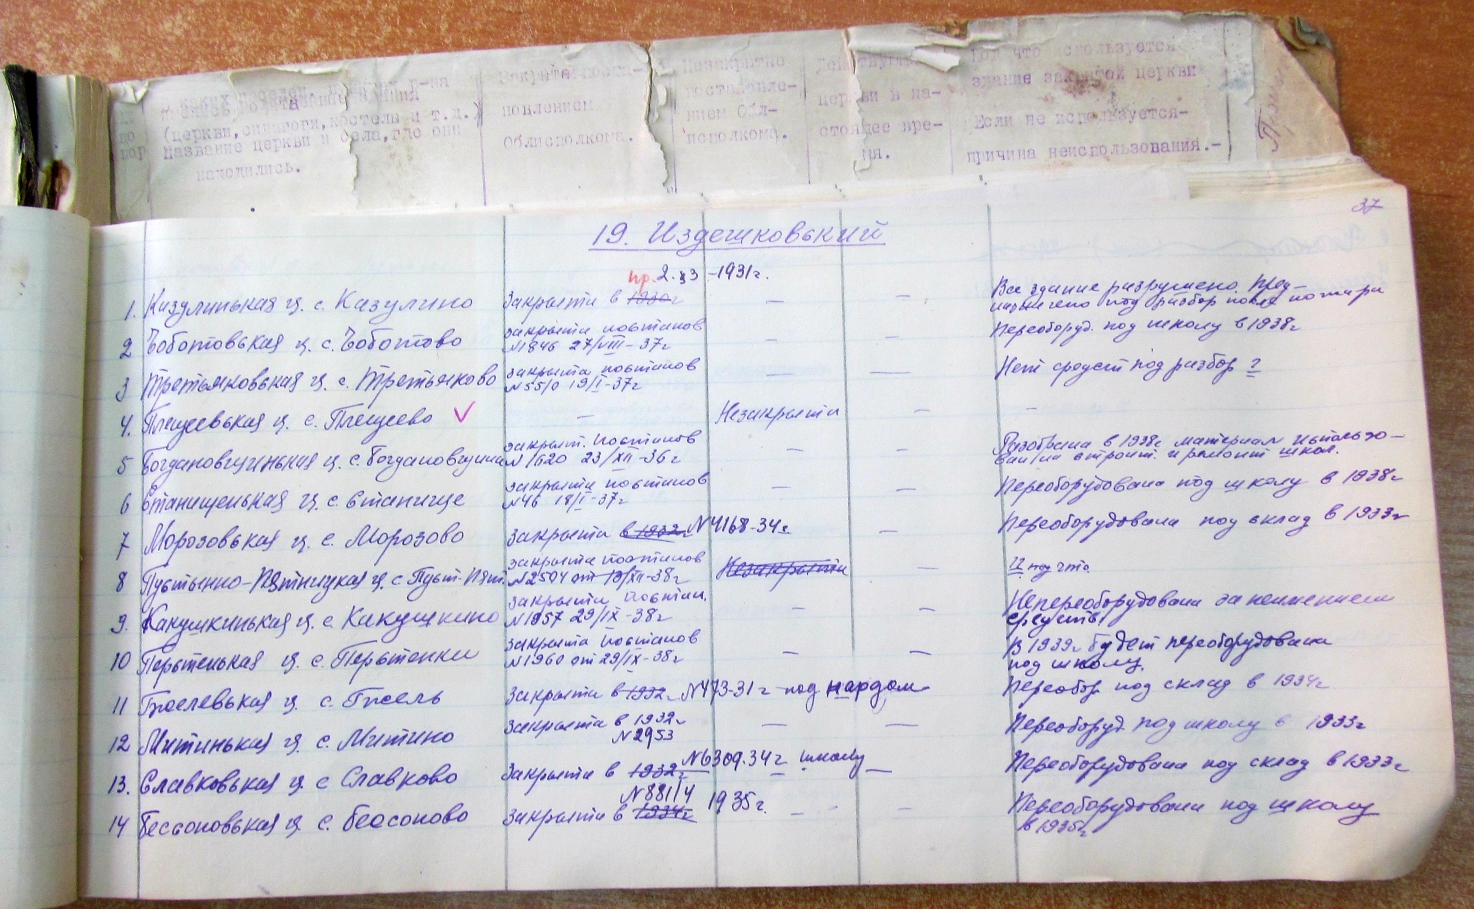 Закрыто поста-
новлением
Облисполкома.
Незакрыто
постановле-
нием Обл-
исполкома.
Действующ.
церкви в на-
стоящее вре-
мя.
Под что используется
здание закрытой церкви
Если не используется-
причина неиспользования.-
(церкви, синагоги, костелы и т.д.)
Название церкви и села, где они
находились.
по
пор
37
19. Издешковский
пр. 2.з3 -1931г.
1. Казулинская ц. с. Казулино Закрыта в 1930г — — Все здание разрушено. Пред-
назначено под разбор после пожара
2 Боботовская ц. с. Боботово закрыта постанов — — Переоборуд. под школу в 1938г
№1846 27/VIII-37г
3 Третьяковская ц. с. Третьяково закрыта постанов — — Нет средст под разбор ?
№5510 19/I-37г
4. Плещеевская ц. с. Плещеево ✓ — Незакрыта — —
5 Богдановщинская ц. с. Богдановщина закрыт. постанов — — Разобрана в 1938г материал использо-
№1620 23/XII-36г ван на строит. и ремонт школ.
6 Станищенская ц. с. Станище закрыта постанов — — Переоборудована под школу в 1938г
№46 18/I-37г
7 Морозовская ц. с. Морозово Закрыта в 1932г №4168-34г — Переоборудована под склад в 1933г
8 Пустынно-Пятницкая ц. с Пуст-Пят. закрыта постанов Незакрыта —
№2504 от 13/XII-38г
9. Какушкинская ц. с Какушкино закрыта постан. — — Непереоборудована за неимением
№1957 29/IX-38г средств
10 Перстенская ц. с. Перстенки закрыта постанов — — В 1939г будет переоборудована
№1960 от 29/IX-38г под школу.
11 Гжелевская ц. с. Гжель Закрыта в 1932 №473-31г под нардом — Переобор под склад в 1934г
12 Митинская ц. с. Митино Закрыта в 1932г — — Переоборуд. под школу в 1933г
№2953
13. Славковская ц. с Славково Закрыта в 1932г №6309.34г школу — — Переоборудована под склад в 1933г
№881/4
14 Бессоновская ц с. Бессоново Закрыта в 1934г 1935г. — — Переоборудована под школу
в 1935г